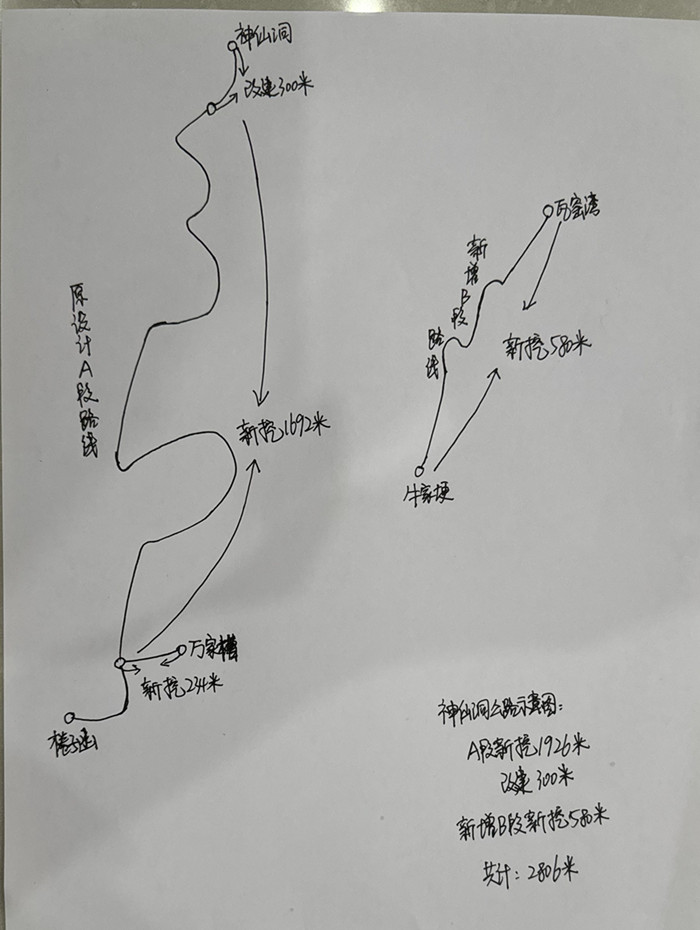 神仙洞
改建300米
瓦窑湾
新增B段
路线
原设计A段路线
新挖580米
新挖1692米
牛家埂
万家槽
新挖234米
神仙洞公路示意图:
A段新挖1926米
改建300米
新增B段新挖580米
共计:2806米